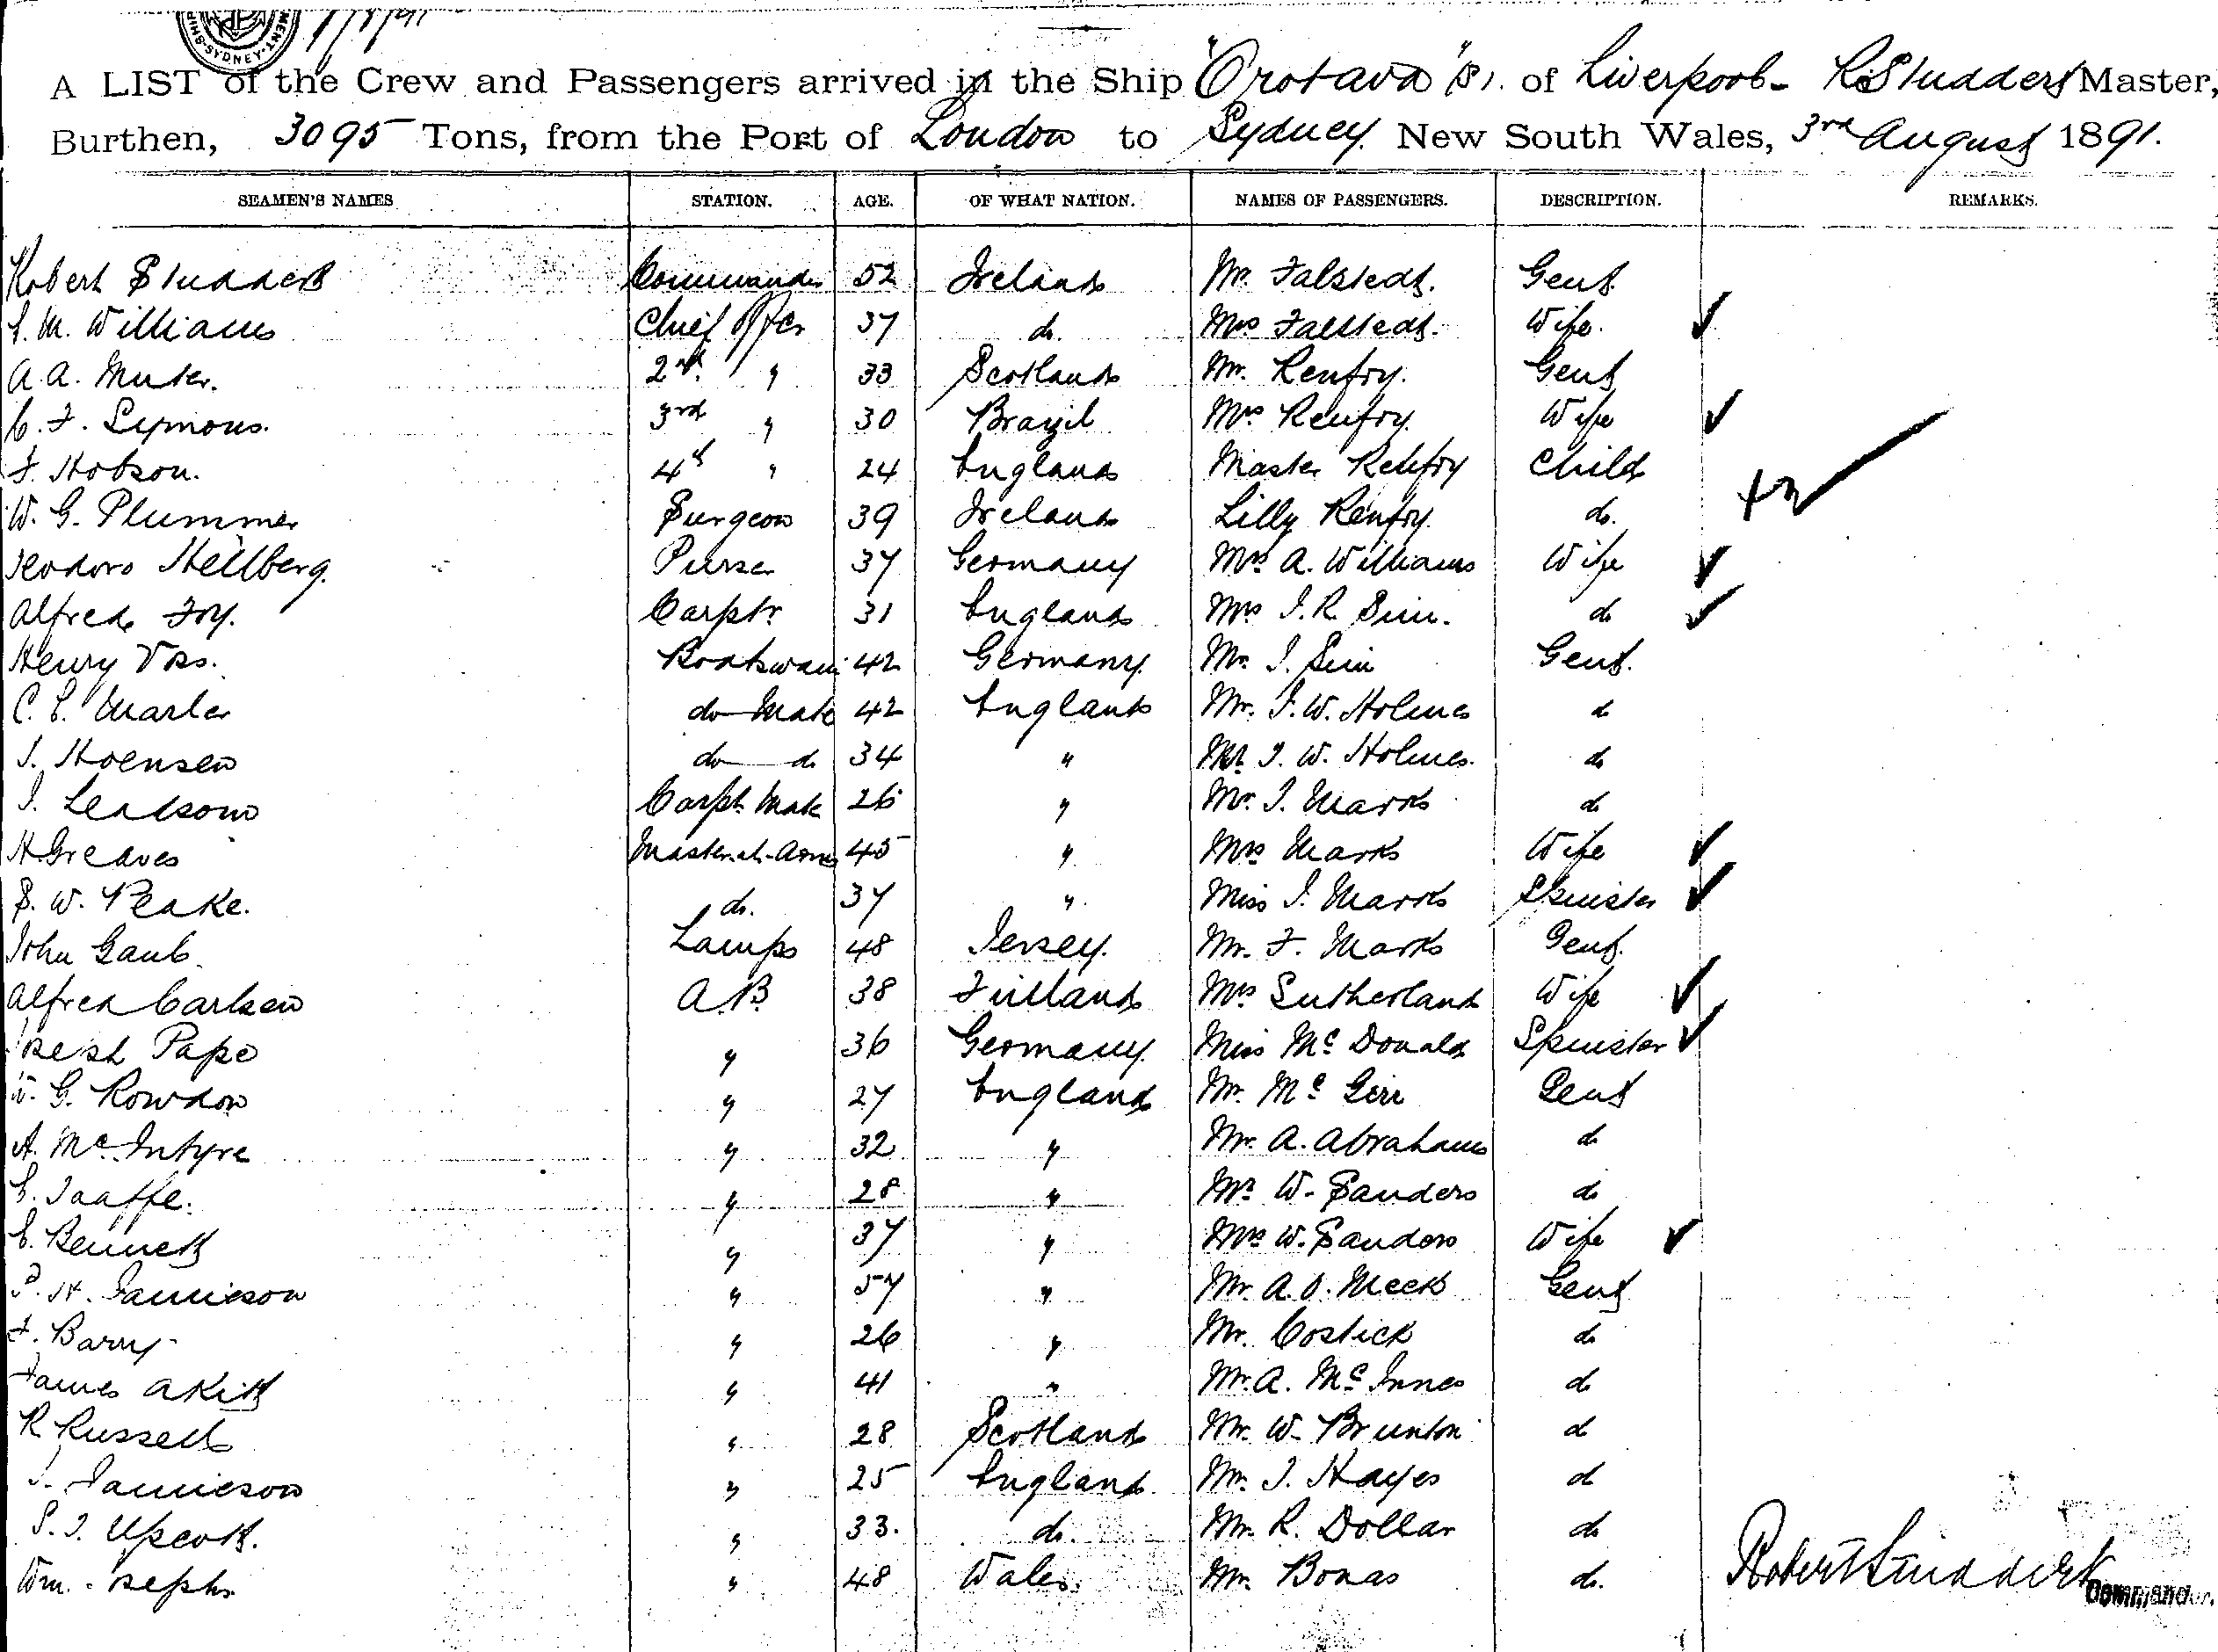 MENT. SHIP SYDNEY
A LIST of the Crew and Passengers arrived in the Ship "Orotava" (S). of Liverpool - R. Studdert Master,
Burthen, 3095 Tons, from the Port of London to Sydney New South Wales, 3rd August 1891.
SEAMEN'S NAMES STATION. AGE. OF WHAT NATION. NAMES OF PASSENGERS. DESCRIPTION. REMARKS.
Robert Studdert Commander 52 Ireland Mr. Falstedt. Gent.
M. Williams Chief Offcr 37 do. Mrs Falstedt. Wife.
A. A. Muter. 2nd " 33 Scotland Mr. Renfry. Gent
C. F. Symons. 3rd " 30 Brazil Mrs Renfry. Wife
F. Hobson. 4th " 24 England Master Renfry Child
W. G. Plummer Surgeon 39 Ireland Lilly Renfry. do.
Teodoro Hellberg. Purser 37 Germany Mrs A. Williams Wife
Alfred Fry. Carptr. 31 England Mrs J. R. Sim. do
Henry Voss. Boatswain 42 Germany. Mr. J. Sim Gent.
C. E. Marler do Mate 42 England Mr. J. W. Holmes do
J. Hoensen do do 34 " J. W. Holmes. do
J. Leadsom Carpt. Mate 26 " Mr. J. Marks do
H Greaves Master-at-Arms 45 " Mrs Marks Wife
S. W. Peake. do. 37 " Miss J. Marks Spinster
John Gaub. Lamps 48 Jersey. Mr. F. Marks Gent.
Alfred Carlsen A.B. 38 Finland Mrs Sutherland Wife
Pape " 36 Germany. Miss McDonald Spinster
G. Rowdon " 27 England Mr. McGirr Gent
A. McIntyre " 32 " Mr. A. Abrahams do
Taaffe. " 28 " Mr. W. Sanders do
E. Bennett " 37 " Mrs W. Sanders Wife
H. Jamieson " 57 " Mr. A. O. Meek Gent
F. Barry " 26 " Mr. Costick do
James Akitt " 41 " Mr. A. McInnes do
R Russell " 28 Scotland Mr. W. Brunton do
J. Jamieson " 25 England Mr. J. Hayes do
S. J. Upcott. " 33. do. Mr. R. Dollar do
Wm. " 48 Wales. Mr. Bonas do.
Robert Studdert
Commander.